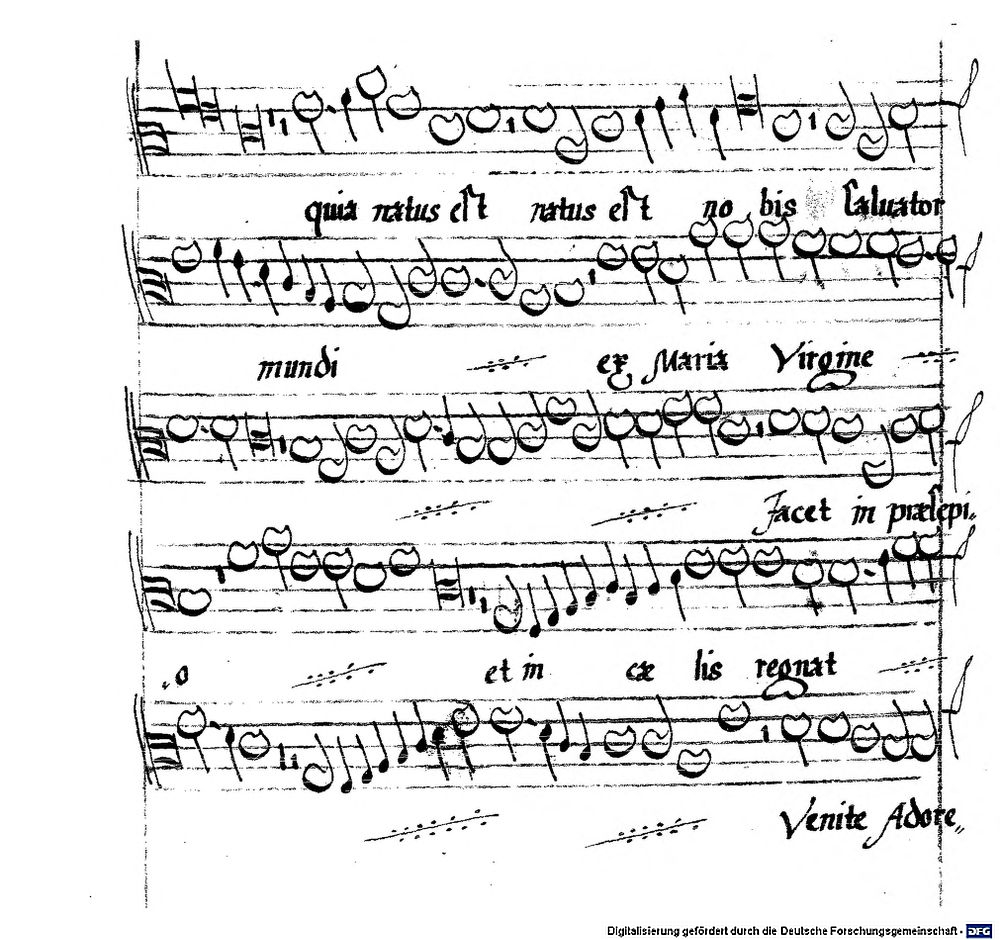 quia natus eſt natus eſt no bis ſaluator
mundi ex Maria Virgine
Jacet in præſepi„
„o et in cæ lis regnat
Venite Adore„
Digitalisierung gefördert durch die Deutsche Forschungsgemeinschaft - DFG